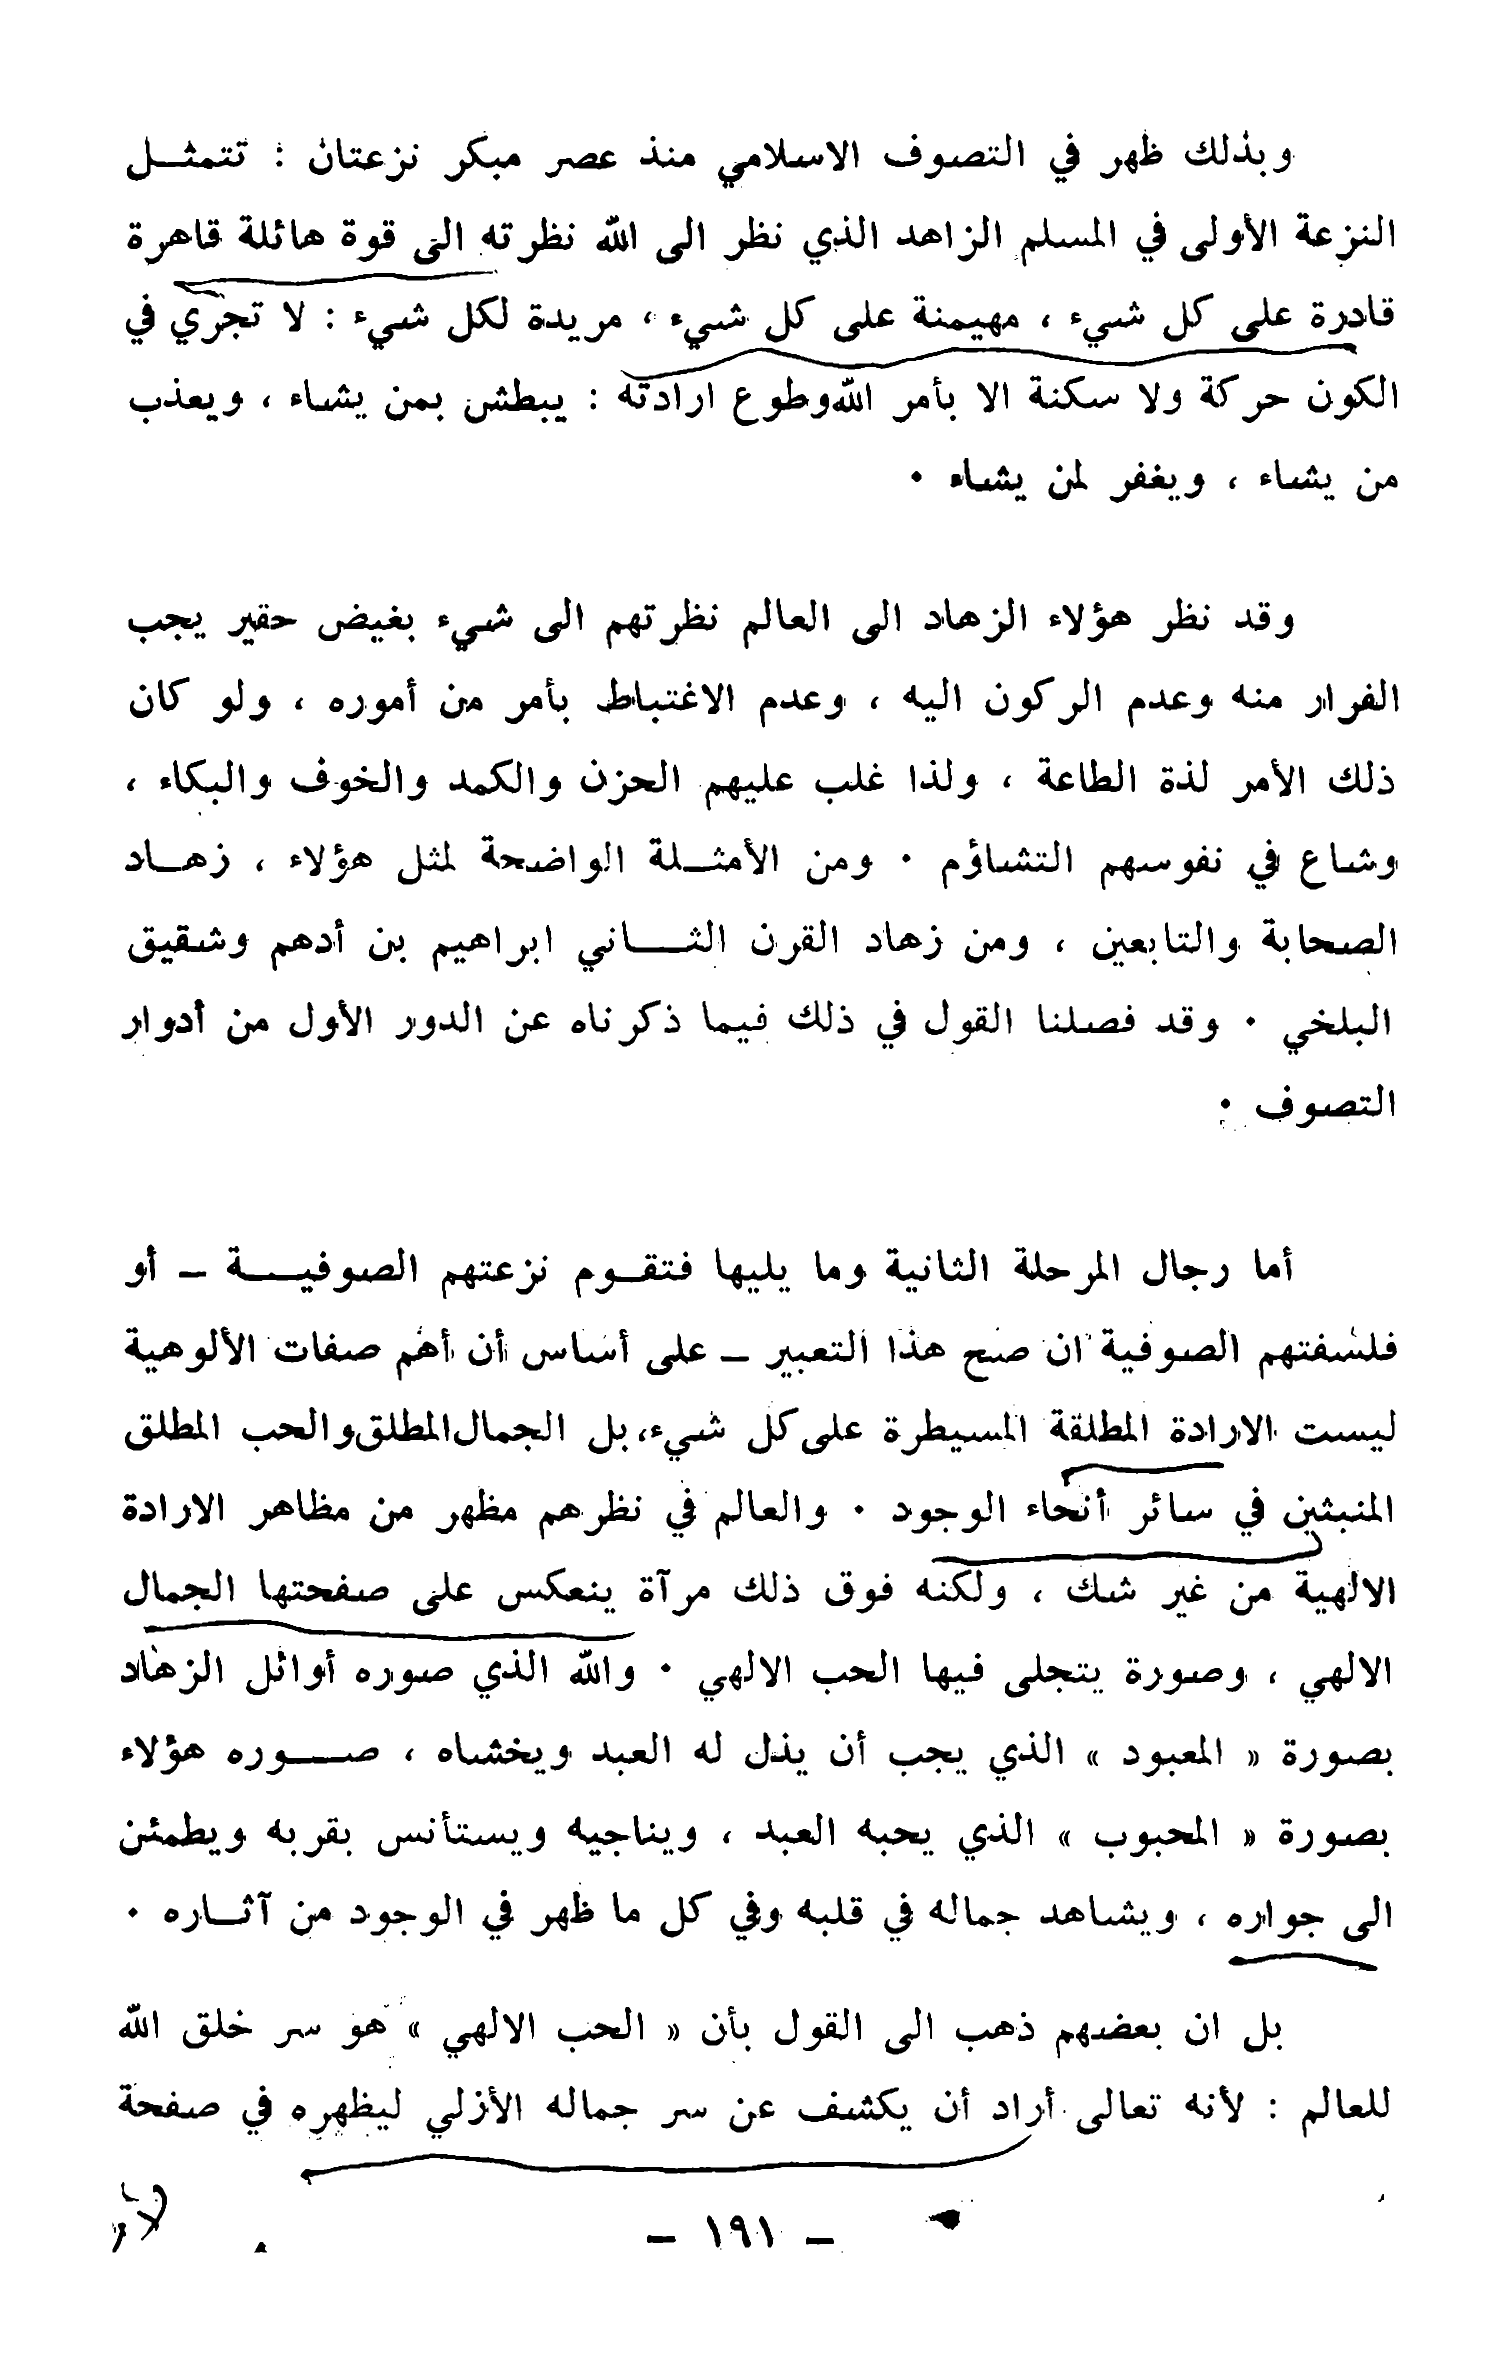 وبذلك ظهر في التصوف الاسلامي منذ عصر مبكر نزعتان : تتمثــل
النزعة الأولى في المسلم الزاهد الذي نظر الى الله نظرته الى قوة هائلة قاهرة
قادرة على كل شيء ، مهيمنة على كل شيء ، مريدة لكل شيء : لا تجري في
الكون حركة ولا سكنة الا بأمر الله وطوع ارادته : يبطش بمن يشاء ، ويعذب
من يشاء ، ويغفر لمن يشاء ٠
وقد نظر هؤلاء الزهاد الى العالم نظرتهم الى شيء بغيض حقير يجب
الفرار منه وعدم الركون اليه ، وعدم الاغتباط بأمر من أموره ، ولو كان
ذلك الأمر لذة الطاعة ، ولذا غلب عليهم الحزن والكمد والخوف والبكاء ،
وشاع في نفوسهم التشاؤم ٠ ومن الأمثــلة الواضحة لمثل هؤلاء ، زهــاد
الصحابة والتابعين ، ومن زهاد القرن الثــــاني ابراهيم بن أدهم وشقيق
البلخي ٠ وقد فصلنا القول في ذلك فيما ذكرناه عن الدور الأول من أدوار
التصوف ٠
أما رجال المرحلة الثانية وما يليها فتقــوم نزعتهم الصوفيــــة – أو
فلسفتهم الصوفية ان صح هذا التعبير – على أساس أن أهم صفات الألوهية
ليست الارادة المطلقة المسيطرة على كل شيء، بل الجمال المطلق والحب المطلق
المنبثين في سائر أنحاء الوجود ٠ والعالم في نظرهم مظهر من مظاهر الارادة
الالهية من غير شك ، ولكنه فوق ذلك مرآة ينعكس على صفحتها الجمال
الالهي ، وصورة يتجلى فيها الحب الالهي ٠ والله الذي صوره أوائل الزهاد
بصورة « المعبود » الذي يجب أن يذل له العبد ويخشاه ، صــــوره هؤلاء
بصورة « المحبوب » الذي يحبه العبد ، ويناجيه ويستأنس بقربه ويطمئن
الى جواره ، ويشاهد جماله في قلبه وفي كل ما ظهر في الوجود من آثــاره ٠
بل ان بعضهم ذهب الى القول بأن « الحب الالهي » هو سر خلق الله
للعالم : لأنه تعالى أراد أن يكشف عن سر جماله الأزلي ليظهره في صفحة
– ١٩١ –